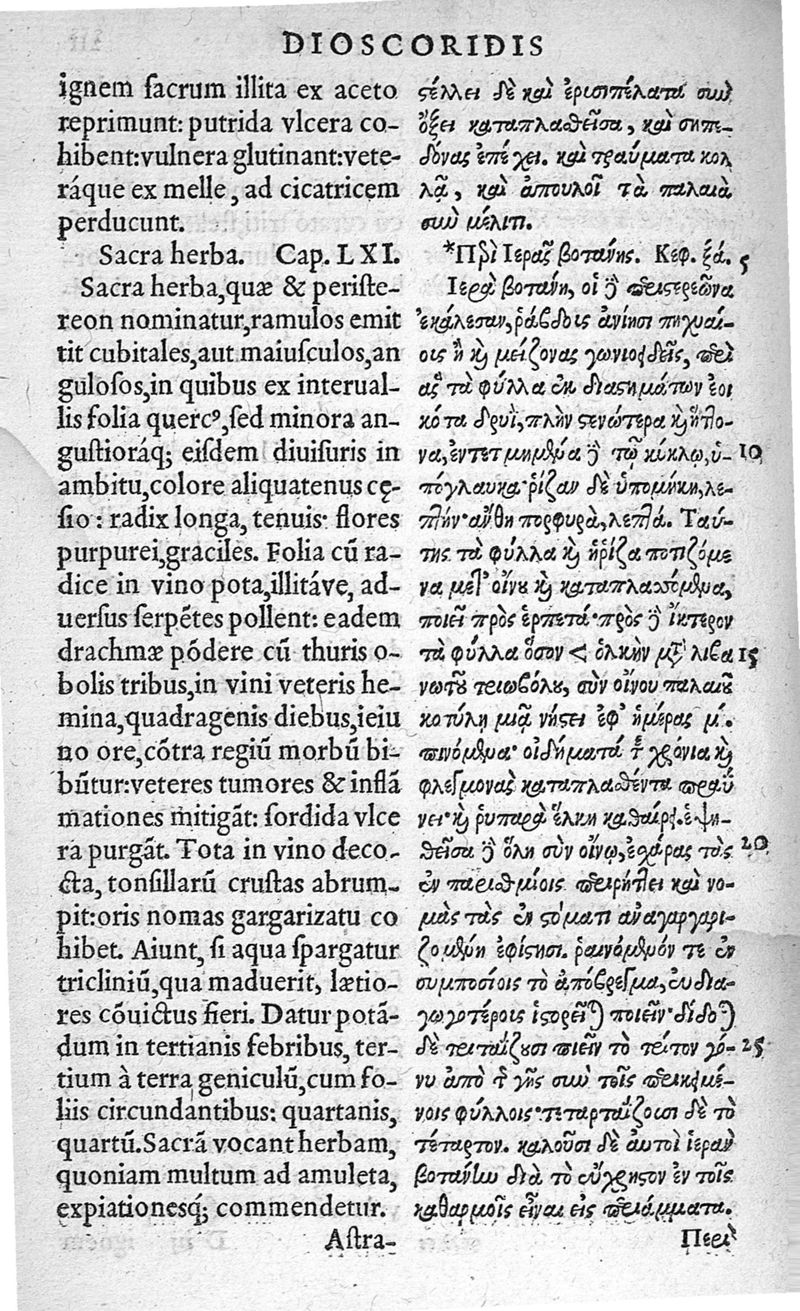 DIOSCORIDIS
ignem ſacrum illita ex aceto
reprimunt: putrida vlcera co-
hibent:vulnera glutinant:vete-
ráque ex melle, ad cicatricem
perducunt.
Sacra herba. Cap. LXI.
Sacra herba,quæ & periſte-
reon nominatur,ramulos emit
tit cubitales,aut maiuſculos,an
guloſos,in quibus ex interual-
lis folia quercꝰ,ſed minora an-
guſtioráq; eiſdem diuiſuris in
ambitu,colore aliquatenus cę-
ſio: radix longa, tenuis: flores
purpurei,graciles. Folia cū ra-
dice in vino pota,illitáve, ad-
uerſus ſerpẽtes pollent: eadem
drachmæ põdere cū thuris o-
bolis tribus,in vini veteris he-
mina,quadragenis diebus,ieiu
no ore,cõtra regiū morbū bi-
būtur:veteres tumores & inflā
mationes mitigāt: ſordida vlce
ra purgāt. Tota in vino deco-
cta, tonſillarū cruſtas abrum-
pit:oris nomas gargarizatu co
hibet. Aiunt, ſi aqua ſpargatur
tricliniū,qua maduerit, lætio-
res cõuictus fieri. Datur potā-
dum in tertianis febribus, ter-
tium à terra geniculū,cum fo-
liis circundantibus: quartanis,
quartū.Sacrā vocant herbam,
quoniam multum ad amuleta,
expiationesq́; commendetur.
Aſtra-
ϛέλλει δὲ καὶ ἐρισιπέλατα σιωὺ
ὄξει καταπλασθεῖσα, καὶ σηπε-
δόνας ἐπέχει. καὶ τραύματα κολ
λᾷ, καὶ ἀπουλοῖ τὰ παλαιὰ
σιωὺ μέλιτι.
*Περὶ Ιερᾶς βοτάνης. Κεφ. ξά. 5
Ιερὰ βοτάνη, οἱ δὲ περιϛερεῶνα
ἐκάλεσαν,ῥάβδοις ἀνίησι πηχυαί-
οις ἢ καὶ μείζονας γωνιοειδεῖς, περὶ
ἃς τὰ φύλλα ἐκ διαϛημάτων ἐοι
κότα δρυῒ,πλὴν ϛενώτερα καὶ ἥττο-
να,ἐντετμημένα δὲ τῷ κύκλῳ,ὑ- 10
πόγλαυκα·ῥίζαν δὲ ὑπομήκη,λε-
πτήν·ἄνθη πορφυρὰ,λεπτά. Ταύ-
της τὰ φύλλα καὶ ἡ ῥίζα ποτιζόμε
να μετ' οἴνου καὶ καταπλασσόμενα,
ποιεῖ πρὸς ἑρπετά·πρὸς δὲ ἴκτερον
τὰ φύλλα ὅσον < ὁλκὴν μετὰ λιβα 15
νωτοῦ τριωβόλου, σὺν οἴνου παλαιοῦ
κοτύλῃ μιᾷ νήϛει ἐφ' ἡμέρας μ.
πινόμενα· οἰδήματά τε χρόνια καὶ
φλεγμονὰς καταπλασθέντα πραΰ
νει· καὶ ῥυπαρὰ ἕλκη καθαίρει.ἑψη-
θεῖσα δὲ ὅλη σὺν οἴνῳ,ἐσχάρας τὰς 20
ἐν παρισθμίοις περιρήττει καὶ νο-
μὰς τὰς ἐν ϛόματι ἀναγαργαρι-
ζομένη ἐφίϛησι. ῥαινόμενόν τε ἐν
συμποσίοις τὸ ἀπόβρεγμα,εὐδια-
γωγοτέροις ἱϛορεῖται ποιεῖν·δίδοται
δὲ τριταΐζουσι πιεῖν τὸ τρίτον γό- 25
νυ ἀπὸ τῆς γῆς σιωὺ τοῖς περικειμέ-
νοις φύλλοις·τεταρταΐζουσι δὲ τὸ
τέταρτον. καλοῦσι δὲ αὐτοὶ ἱερὰν
βοτάνην διὰ τὸ εὔχρηϛον ἐν τοῖς
καθαρμοῖς εἶναι εἰς περιάμματα.
Περὶ